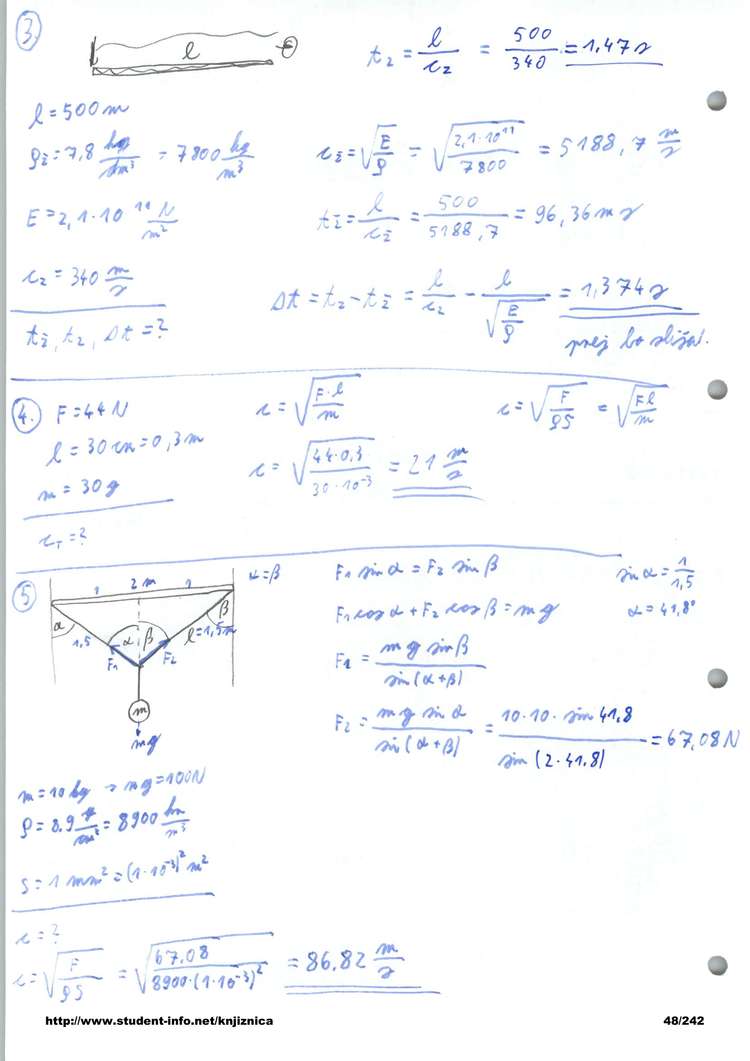 3.
l
t₂ = l/c₂ = 500/340 = 1,47 s
l = 500 m
ρž = 7,8 kg/dm³ = 7800 kg/m³
cž = √(E/ρ) = √(2,1·10¹¹/7800) = 5188,7 m/s
E = 2,1·10¹¹ N/m²
tž = l/cž = 500/5188,7 = 96,36 ms
cz = 340 m/s
Δt = tz - tž = l/cz - l/√(E/ρ) = 1,374 s
tž, tz, Δt = ?
prej bo slišal.
4. F = 44 N
c = √(F·l/m)
c = √(F/ρS) = √(Fl/m)
l = 30 cm = 0,3 m
c = √(44·0,3/30·10⁻³) = 21 m/s
m = 30 g
cT = ?
5
1 2 m 1
α = β
α 1,5 α β l = 1,5 m β
F₁ F₂
m
mg
F₁ sin α = F₂ sin β
sin α = 1/1,5
F₁ cos α + F₂ cos β = mg
α = 41,8°
F₁ = mg sin β/sin(α+β)
F₂ = mg sin α/sin(α+β) = 10·10·sin 41,8/sin(2·41,8) = 67,08 N
m = 10 kg → mg = 100 N
ρ = 8.9 g/cm³ = 8900 kg/m³
S = 1 mm² = (1·10⁻³)² m²
c = ?
c = √(F/ρS) = √(67,08/8900·(1·10⁻³)²) = 86,82 m/s
http://www.student-info.net/knjiznica 48/242